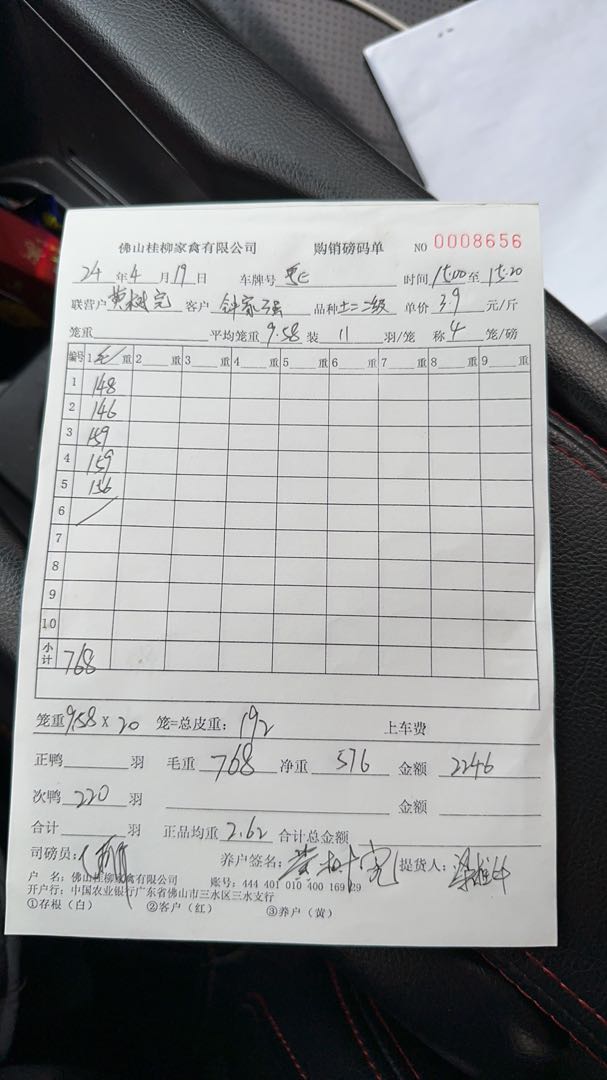 佛山桂柳家禽有限公司 购销磅码单 NO 0008656
24 年 4 月 19 日 车牌号 时间 15:00 至 15:20
联营户 黄树完 客户 钟家强 品种 土二 二级 单价 3.9 元/斤
笼重 平均笼重 9.58 装 11 羽/笼 称 4 笼/磅
编号 1 毛 重 2 重 3 重 4 重 5 重 6 重 7 重 8 重 9 重
1 148
2 146
3 159
4 159
5 156
6
7
8
9
10
小计 768
笼重 9.58 × 20 笼=总皮重: 192 上车费
正鸭 羽 毛重 768 净重 576 金额 2246
次鸭 220 羽 金额
合计 羽 正品均重 2.62 合计总金额
司磅员: 养户签名: 黄树完 提货人:
户 名: 佛山桂柳家禽有限公司 账号: 444 401 010 400 169 29
开户行: 中国农业银行广东省佛山市三水区三水支行
①存根（白） ②客户（红） ③养户（黄）